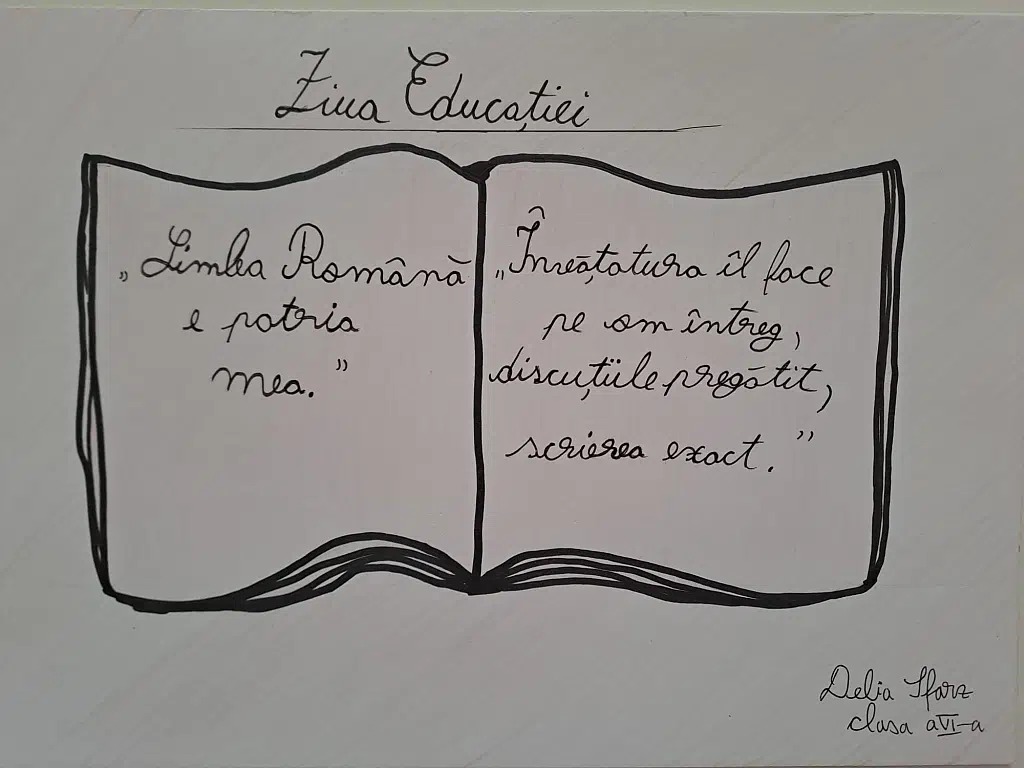 Ziua Educației
„Limba Română
e patria
mea.”
„Învățatura îl face
pe om întreg,
discuțiile pregătit,
scrierea exact.”
Delia Sfarz
clasa aVI-a